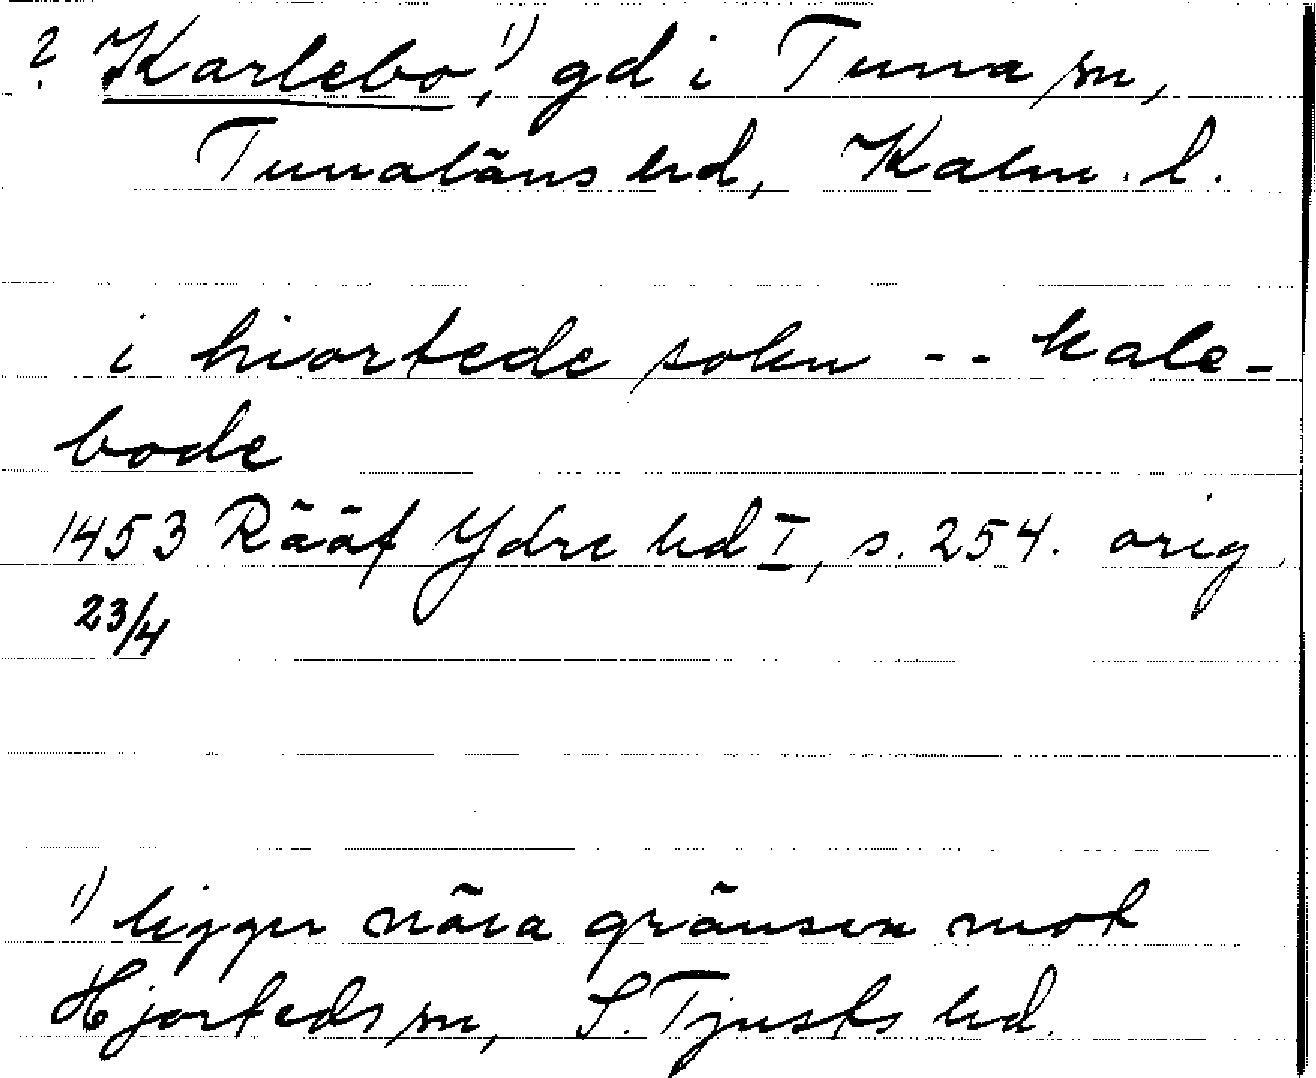 ? Karlebo,¹⁾ gd i Tuna sn,
Tunaläns hd, Kalm. l.
i hiortede sokn -- kale-
bode
1453 Rääf Ydre hd I, s. 254. orig.
23/4
¹⁾ ligger nära gränsen mot
Hjorteds sn, S. Tjusts hd.